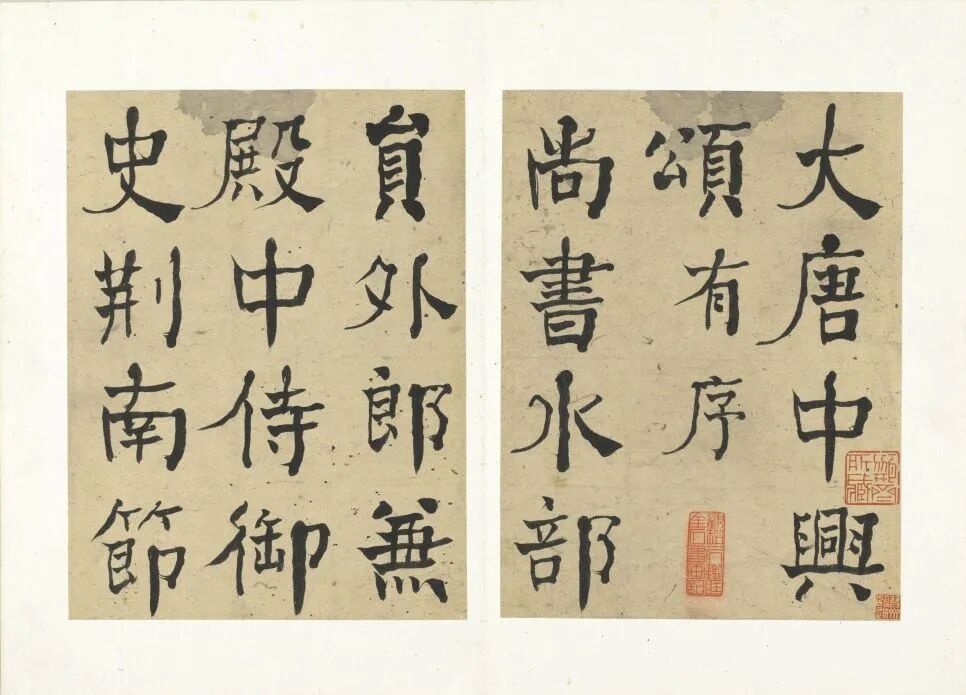 大唐中興
頌有序
尚書水部
負外郎兼
殿中侍御
史荆南節